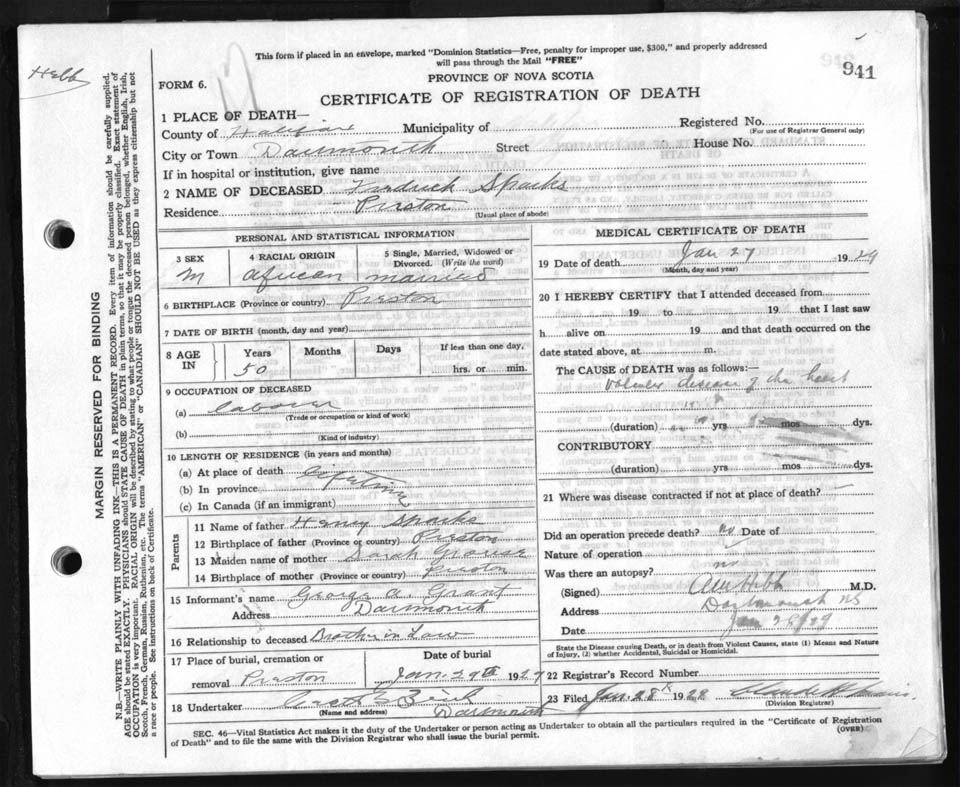 Hebb
This form if placed in an envelope, marked "Dominion Statistics—Free, penalty for improper use, $300," and properly addressed
will pass through the Mail "FREE"
941
PROVINCE OF NOVA SCOTIA
FORM 6.
CERTIFICATE OF REGISTRATION OF DEATH
1 PLACE OF DEATH—
County of Halifax Municipality of Registered No.
(For use of Registrar General only)
City or Town Dartmouth Street House No.
If in hospital or institution, give name
2 NAME OF DECEASED Fredrick Sparks
Residence Preston
(Usual place of abode)
PERSONAL AND STATISTICAL INFORMATION
3 SEX 4 RACIAL ORIGIN 5 Single, Married, Widowed or
Divorced. (Write the word)
M African married
6 BIRTHPLACE (Province or country) Preston
7 DATE OF BIRTH (month, day and year)
8 AGE IN Years Months Days If less than one day,
50 hrs. or min.
9 OCCUPATION OF DECEASED
(a) labourer
(Trade or occupation or kind of work)
(b)
(Kind of industry)
10 LENGTH OF RESIDENCE (in years and months)
(a) At place of death lifetime
(b) In province
(c) In Canada (if an immigrant)
Parents
11 Name of father Henry Sparks
12 Birthplace of father (Province or country) Preston
13 Maiden name of mother Sarah
14 Birthplace of mother (Province or country) Preston
15 Informant's name George A. Grant
Address Dartmouth
16 Relationship to deceased Brother in Law
17 Place of burial, cremation or Date of burial
removal Preston Jan. 29th 1929
18 Undertaker
(Name and address) Dartmouth
MEDICAL CERTIFICATE OF DEATH
19 Date of death Jan 27 1929
(Month, day and year)
20 I HEREBY CERTIFY that I attended deceased from
19 to 19 that I last saw
h alive on 19 and that death occurred on the
date stated above, at m.
The CAUSE of DEATH was as follows:—
disease of the heart
(duration) yrs mos dys.
CONTRIBUTORY
(duration) yrs mos dys.
21 Where was disease contracted if not at place of death?
Did an operation precede death? no Date of
Nature of operation
Was there an autopsy? no
(Signed) Hebb M.D.
Address Dartmouth NS
Date Jan 28/29
State the Disease causing Death, or in death from Violent Causes, state (1) Means and Nature
of Injury, (2) whether Accidental, Suicidal or Homicidal.
22 Registrar's Record Number
23 Filed Jan. 28 1929
(Division Registrar)
SEC. 46—Vital Statistics Act makes it the duty of the Undertaker or person acting as Undertaker to obtain all the particulars required in the "Certificate of Registration
of Death" and to file the same with the Division Registrar who shall issue the burial permit.
(OVER)
MARGIN RESERVED FOR BINDING
N.B.—WRITE PLAINLY WITH UNFADING INK—THIS IS A PERMANENT RECORD. Every item of information should be carefully supplied.
AGE should be stated EXACTLY. PHYSICIANS should STATE CAUSE OF DEATH in plain terms, so that it may be properly classified. Exact statement of
OCCUPATION is very important. RACIAL ORIGIN will be described by stating to what people or tongue the deceased person belonged, whether English, Irish,
Scotch, French, German, Russian, Ruthenian, etc. The terms "AMERICAN" or "CANADIAN" SHOULD NOT BE USED as they express citizenship but not
a race or people. See instructions on back of Certificate.